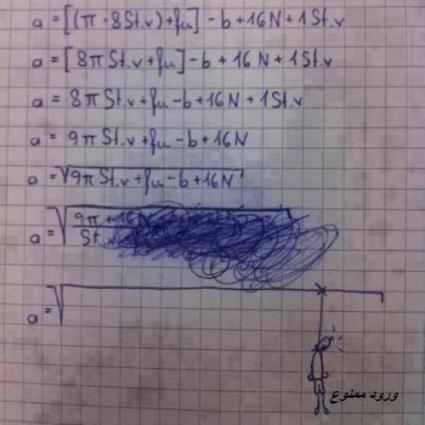 a = [(π · 8St.v) + fu] - b + 16N + 1St.v
a = [8π St.v + fu] - b + 16N + 1St.v
a = 8π St.v + fu - b + 16N + 1St.v
a = 9π St.v + fu - b + 16N
a = √9π St.v + fu - b + 16N
a = √9π + 16N
St.
a = √
ورود ممنوع